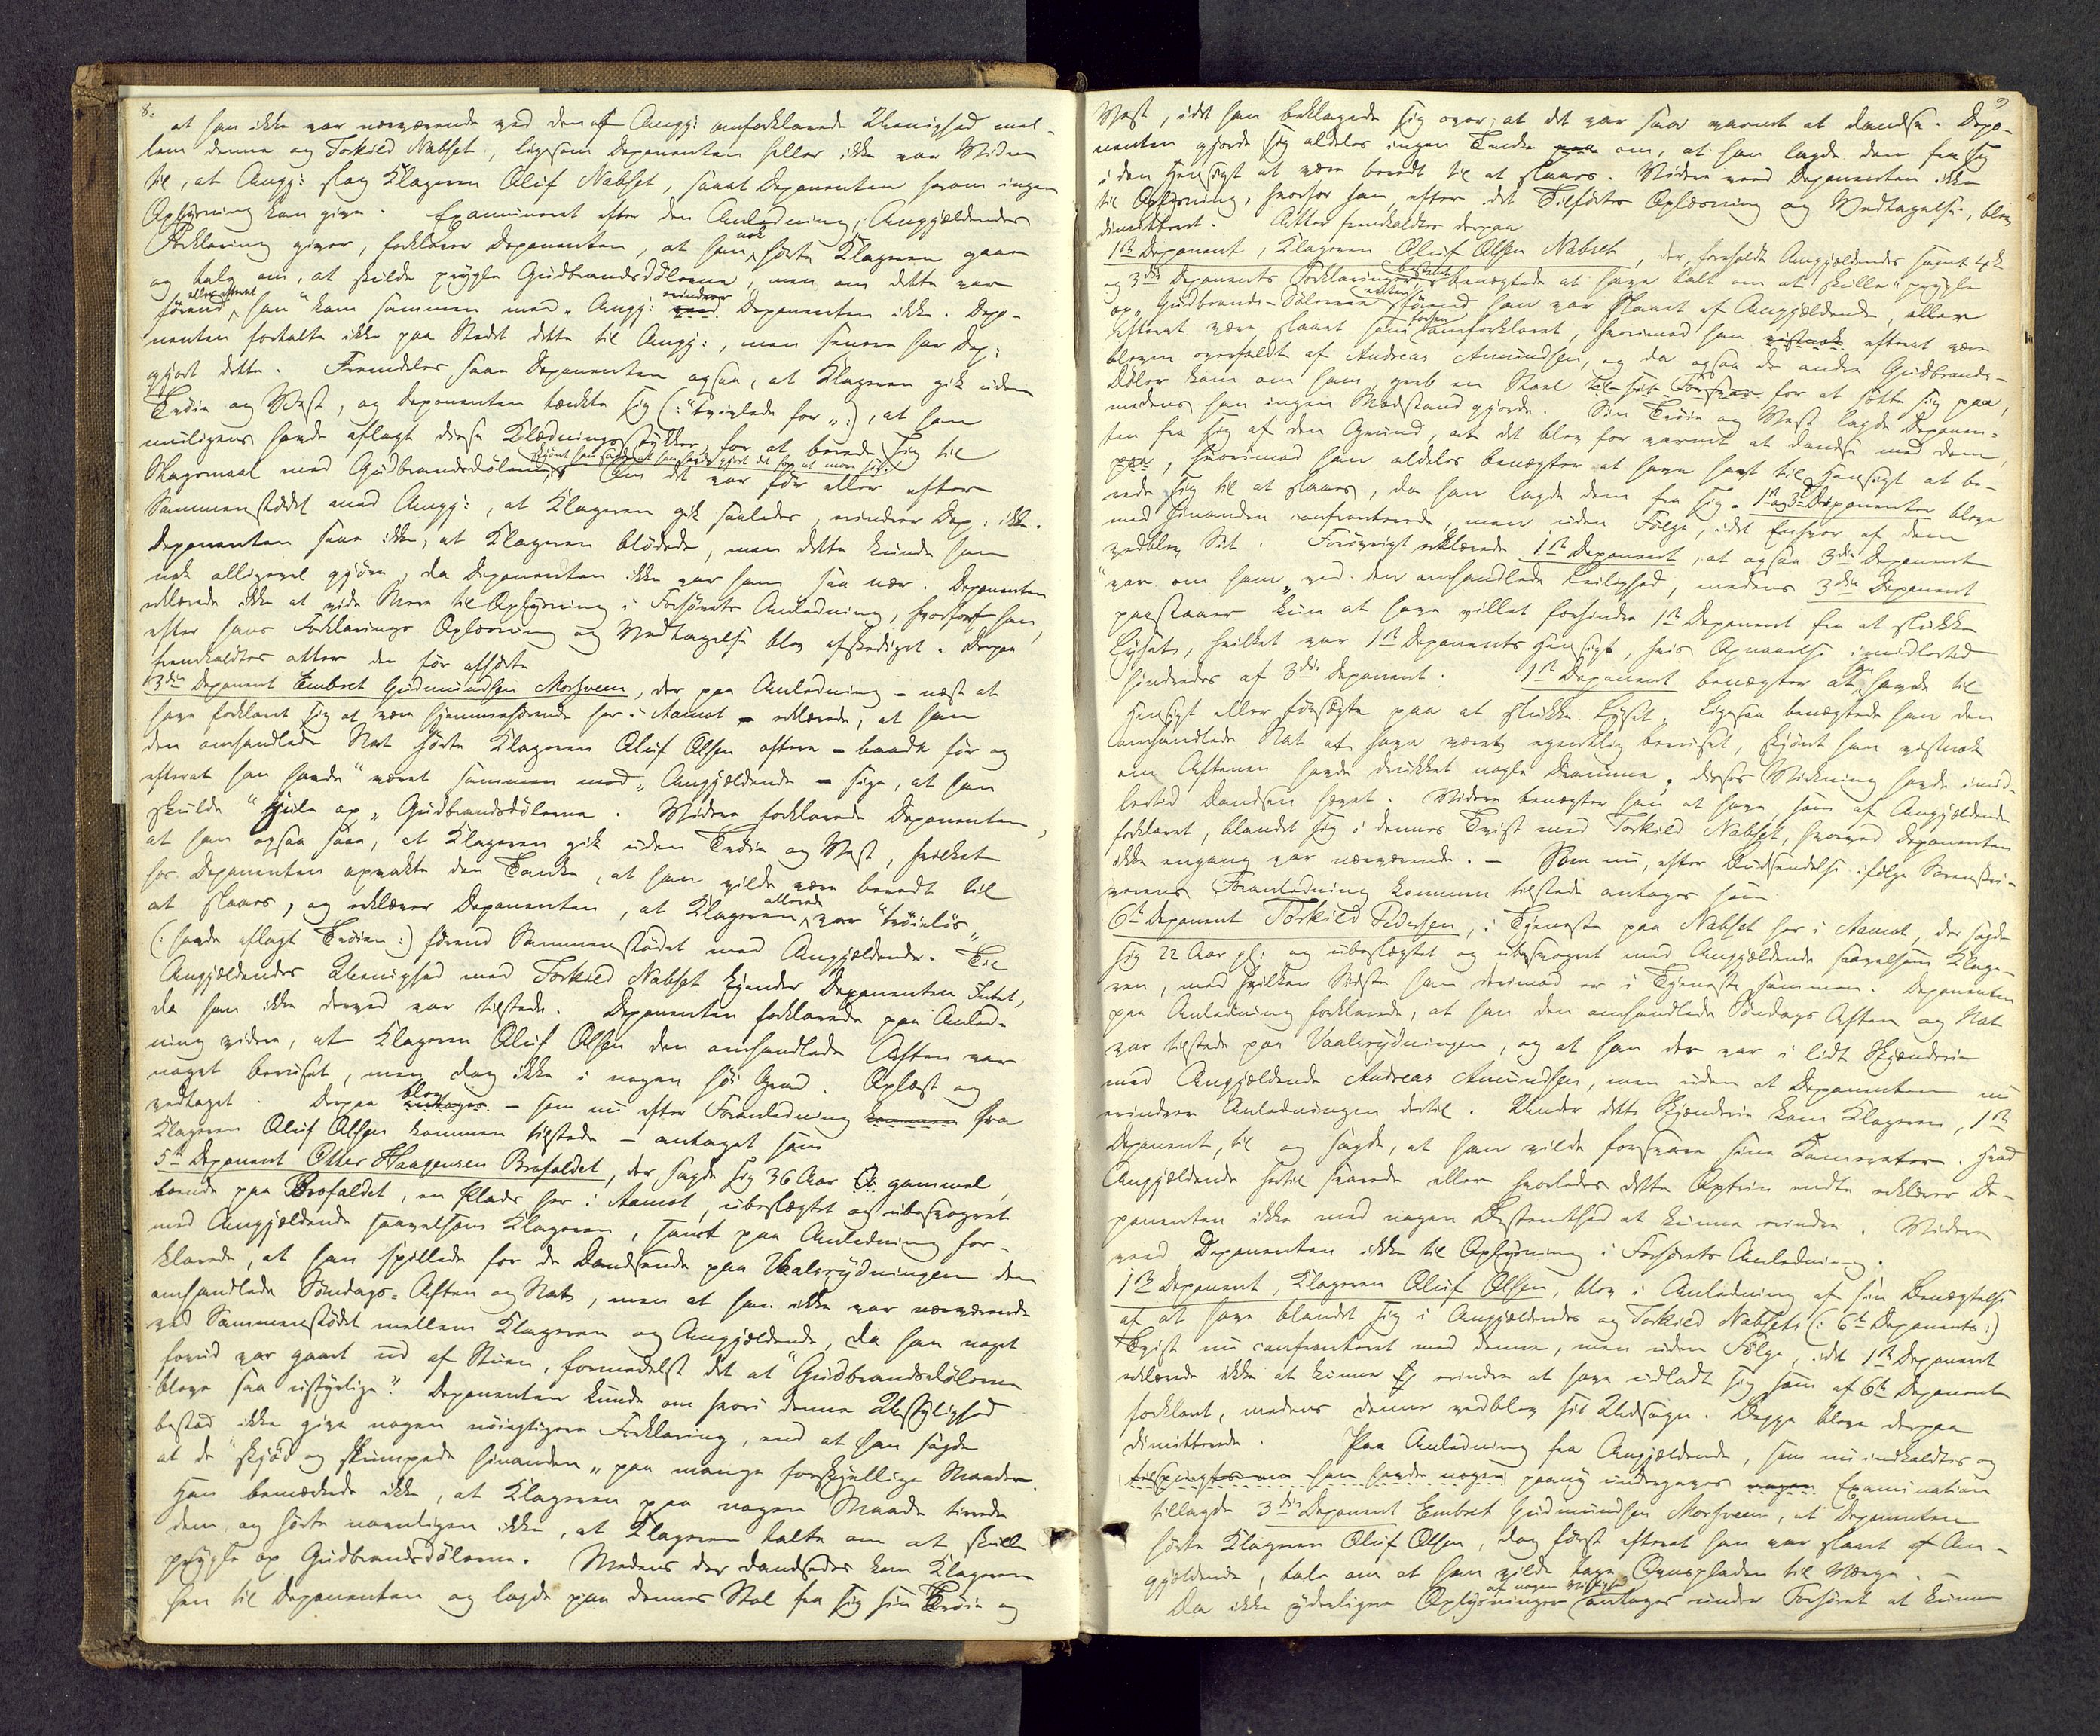 8.
at han ikke var nærværende ved den af Angj: omforklarede Uenighed mel-
lem denne og Torkild Nabset, ligesom Deponenten heller ikke var Vidne
til, at Angj: slog Klageren Oluf Nabset, saaat Deponenten herom ingen
Oplysning kan give. Examineret efter den Anledning, Angjældendes
Forklaring giver, forklarer Deponenten, at han nok hørte Klageren gaae
og tale om, at skulde prygle Gudbrandsdølerne, men om dette var
førend eller efterat han "kom sammen med" Angj: erindrer Deponenten ikke. Depo-
nenten fortalte ikke paa Stedet dette til Angj:, men senere har Dep:
gjort dette. Fremdeles saae Deponenten ogsaa, at Klageren gik uden
Trøie og Vest, og Deponenten tænkte sig (: "tvivlede for" :), at han
muligens havde aflagt disse Klædningsstykker for at berede sig til
Slagsmaal med Gudbrandsdølerne, skjønt han sagde at han havde gjort det for at more sig. Om det var før eller efter
Sammenstødet med Angj:, at Klageren gik saaledes, erindrer Dep: ikke.
Deponenten saae ikke, at Klageren blødede, men dette kunde han
nok alligevel gjøre, da Deponenten ikke var ham saa nær. Deponenten
erklærede ikke at vide Mere til Oplysning i Forhørets Anledning, hvorfor han,
efter hans Forklarings Oplæsning og Vedtagelse blev afskediget. Derpaa
fremkaldtes atter den før afhørte
3die Deponent Embret Gudmundsen Morhveen, der paa Anledning – næst at
have forklaret sig at være hjemmehørende her i Aamot – erklærede, at han
den omhandlede Nat hørte Klageren Oluf Olsen oftere – baade før og
efterat han havde "været sammen med" Angjældende – sige, at han
skulde "hule op" Gudbrandsdølerne. Videre forklarede Deponenten,
at han ogsaa saae, at Klageren gik uden Trøie og Vest, hvilket
hos Deponenten opvakte den Tanke, at han vilde være beredt til
at slaaes, og erklærer Deponenten, at Klageren allerede var "trøieløs"
(: havde aflagt Trøien :) førend Sammenstødet med Angjældende. Til
Angjældendes Uenighed med Torkild Nabset kjender Deponenten Intet,
da han ikke derved var tilstede. Deponenten forklarede paa Anled-
ning videre, at Klageren Oluf Olsen den omhandlede Aften var
noget beruset, men dog ikke i nogen høi Grad. Oplæst og
vedtaget. Derpaa blev – som nu efter Foranledning fra
Klageren Oluf Olsen kommen tilstede – antaget som
5te Deponent Otter Haagensen Brofaldet, der sagde sig 36 Aar gammel,
boende paa Brofaldet, en Plads her i Aamot, ubeslægtet og ubesvogret
med Angjældende saavelsom Klageren, samt paa Anledning for-
klarede, at han spillede for de Dandsende paa Vaalsrydningen den
omhandlede Søndags-Aften og Nat, men at han ikke var nærværende
ved Sammenstødet mellem Klageren og Angjældende, da han noget
forud var gaaet ud af Stuen, formedelst det at "Gudbrandsdølerne
bleve saa ustyrlige". Deponenten kunde om hvori denne Ustyrlighed
bestod ikke give nogen nøiagtigere Forklaring, end at han sagde
at de "skjød og skumpede hinanden" paa mange forskjellige Maader.
Han bemærkede ikke, at Klageren paa nogen Maade tirrede
dem og hørte navnligen ikke, at Klageren talte om at skulle
prygle op Gudbrandsdølerne. Medens der dandsedes kom Klageren
hen til Deponenten og lagde paa dennes Stol fra sig sin Trøie og
9
Vest, idet han beklagede sig over, at det var saa varmt at dandse. Depo-
nenten gjorde sig aldeles ingen Tanke om, at han lagde dem fra sig
i den Hensigt at være beredt til at slaaes. Videre veed Deponenten ikke
til Oplysning, hvorfor han, efter det Tilførtes Oplæsning og Vedtagelse, blev
dimitteret. Atter fremkaldtes derpaa
1ste Deponent, Klageren Oluf Olsen Nabset, der, foreholdt Angjældendes samt 4de
og 3die Deponents Forklaringer bestemt benægtede at have talt om at skulle "prygle
op" Gudbrands-Dølerne enten førend han var slaaet af Angjældende, eller
efterat være slaaet som forhen omforklaret, hvorimod han efterat være
bleven overfaldt af Andreas Amundsen, og da ogsaa de andre Gudbrands-
Døler kom om ham, greb en Stol for at sætte sig paa,
medens han ingen Modstand gjorde. Sin Trøie og Vest lagde Deponen-
ten fra sig af den Grund, at det blev for varmt at dandse med dem
paa, hvorimod han aldeles benægter at have havt til Hensigt at be-
rede sig til at slaaes, da han lagde dem fra sig. 1ste og 3die Deponenter bleve
med hinanden confronterede, men uden Følge, idet Enhver af dem
vedblev Sit. Forøvrigt erklærede 1ste Deponent, at ogsaa 3die Deponent
"var om ham" ved den omhandlede Leilighed, medens 3die Deponent
paastaaer kun at have villet forhindre 1ste Deponent fra at slukke
Lyset, hvilket var 1ste Deponents Hensigt, hvis Opnaaelse imidlertid
hindredes af 3die Deponent. 1ste Deponent benægter at han havde til
Hensigt eller forsøgte paa at slukke Lyset. Ligesaa benægtede han den
omhandlede Nat at have været egentlig beruset, skjønt han vistnok
om Aftenen havde drukket nogle Dramme, disses Virkning havde imid-
lertid Dandsen hævet. Videre benægter han at have som af Angjældende
forklaret, blandet sig i dennes Tvist med Torkild Nabset, hvorved Deponenten
ikke engang var nærværende. – Som nu, efter Budsendelse ifølge Sorenskri-
verens Foranledning kommen tilstede antages som
6te Deponent Torkild Pedersen, i Tjeneste paa Nabset her i Aamot, der sagde
sig 22 Aar gl: og ubeslægtet og ubesvogret med Angjældende saavelsom Klage-
ren, med hvilken Sidste han derimod er i Tjeneste sammen. Deponenten
paa Anledning forklarede, at han den omhandlede Søndags Aften og Nat
var tilstede paa Vaalsrydningen, og at han der var i lidt Skjænderie
med Angjældende Andreas Amundsen, men uden at Deponenten nu
erindrer Anledningen dertil. Under dette Skjænderie kom Klageren, 1ste
Deponent, til og sagde, at han vilde forsvare sine Kamerater. Hvad
Angjældende hertil svarede eller hvorledes dette Optrin endte erklærer De-
ponenten ikke med nogen Bestemthed at kunne erindre. Videre
veed Deponenten ikke til Oplysning i Forhørets Anledning.
1ste Deponent, Klageren Oluf Olsen, blev i Anledning af sin Benægtelse
af at have blandet sig i Angjældendes og Torkild Nabsets (: 6te Deponents :)
Tvist nu confronteret med denne, men uden Følge, idet 1ste Deponent
erklærede ikke at kunne erindre at have udladt sig som af 6te Deponent
forklaret, medens denne vedblev sit Udsagn. Begge bleve derpaa
dimitterede. Paa Anledning fra Angjældende, som nu indkaldtes og
tilspurgtes om han havde nogen paany undergaves Examination
tillagde 3die Deponent Embret Gudmundsen Morhveen, at Deponenten
hørte Klageren Oluf Olsen, dog først efterat han var slaaet af An-
gjældende, tale om at han vilde tage Ovnspladen til Værge. –
Da ikke yderligere Oplysninger af nogen Vigtighed antages under Forhøret at kunne